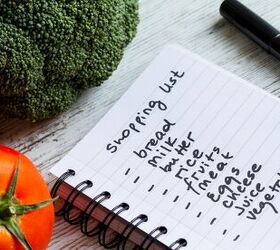 shopping list
- bread
- milk
- butter
- rice
- fruits
- meat
- eggs
- cheese
- juice